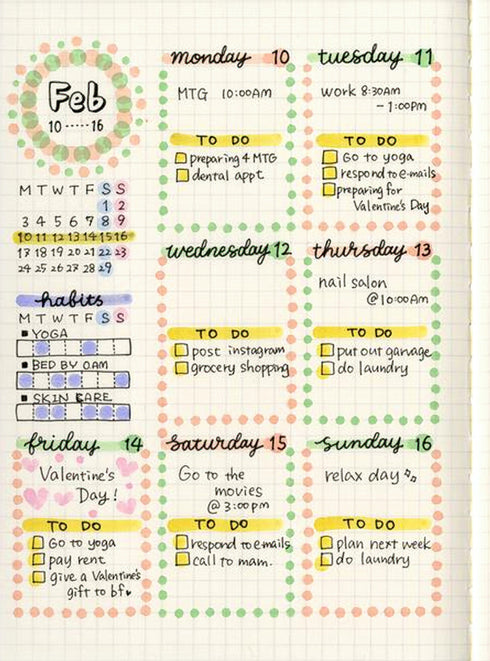 Feb
10 ····· 16
M T W T F S S
1 2
3 4 5 6 7 8 9
10 11 12 13 14 15 16
17 18 19 20 21 22 23
24 25 26 27 28 29
habits
M T W T F S S
▪ YOGA
▪ BED BY 0AM
▪ SKIN CARE
monday 10
MTG 10:00AM
TO DO
preparing 4 MTG
dental appt
tuesday 11
work 8:30AM
- 1:00PM
TO DO
Go to yoga
respond to e-mails
preparing for
Valentine's Day
wednesday 12
TO DO
post instagram
grocery shopping
thursday 13
nail salon
@ 10:00AM
TO DO
put out garvage
do laundry
friday 14
Valentine's
Day!
TO DO
Go to yoga
pay rent
give a Valentine's
gift to bf♥
saturday 15
Go to the
movies
@ 3:00pm
TO DO
respond to e-mails
call to mam.
sunday 16
relax day
TO DO
plan next week
do laundry